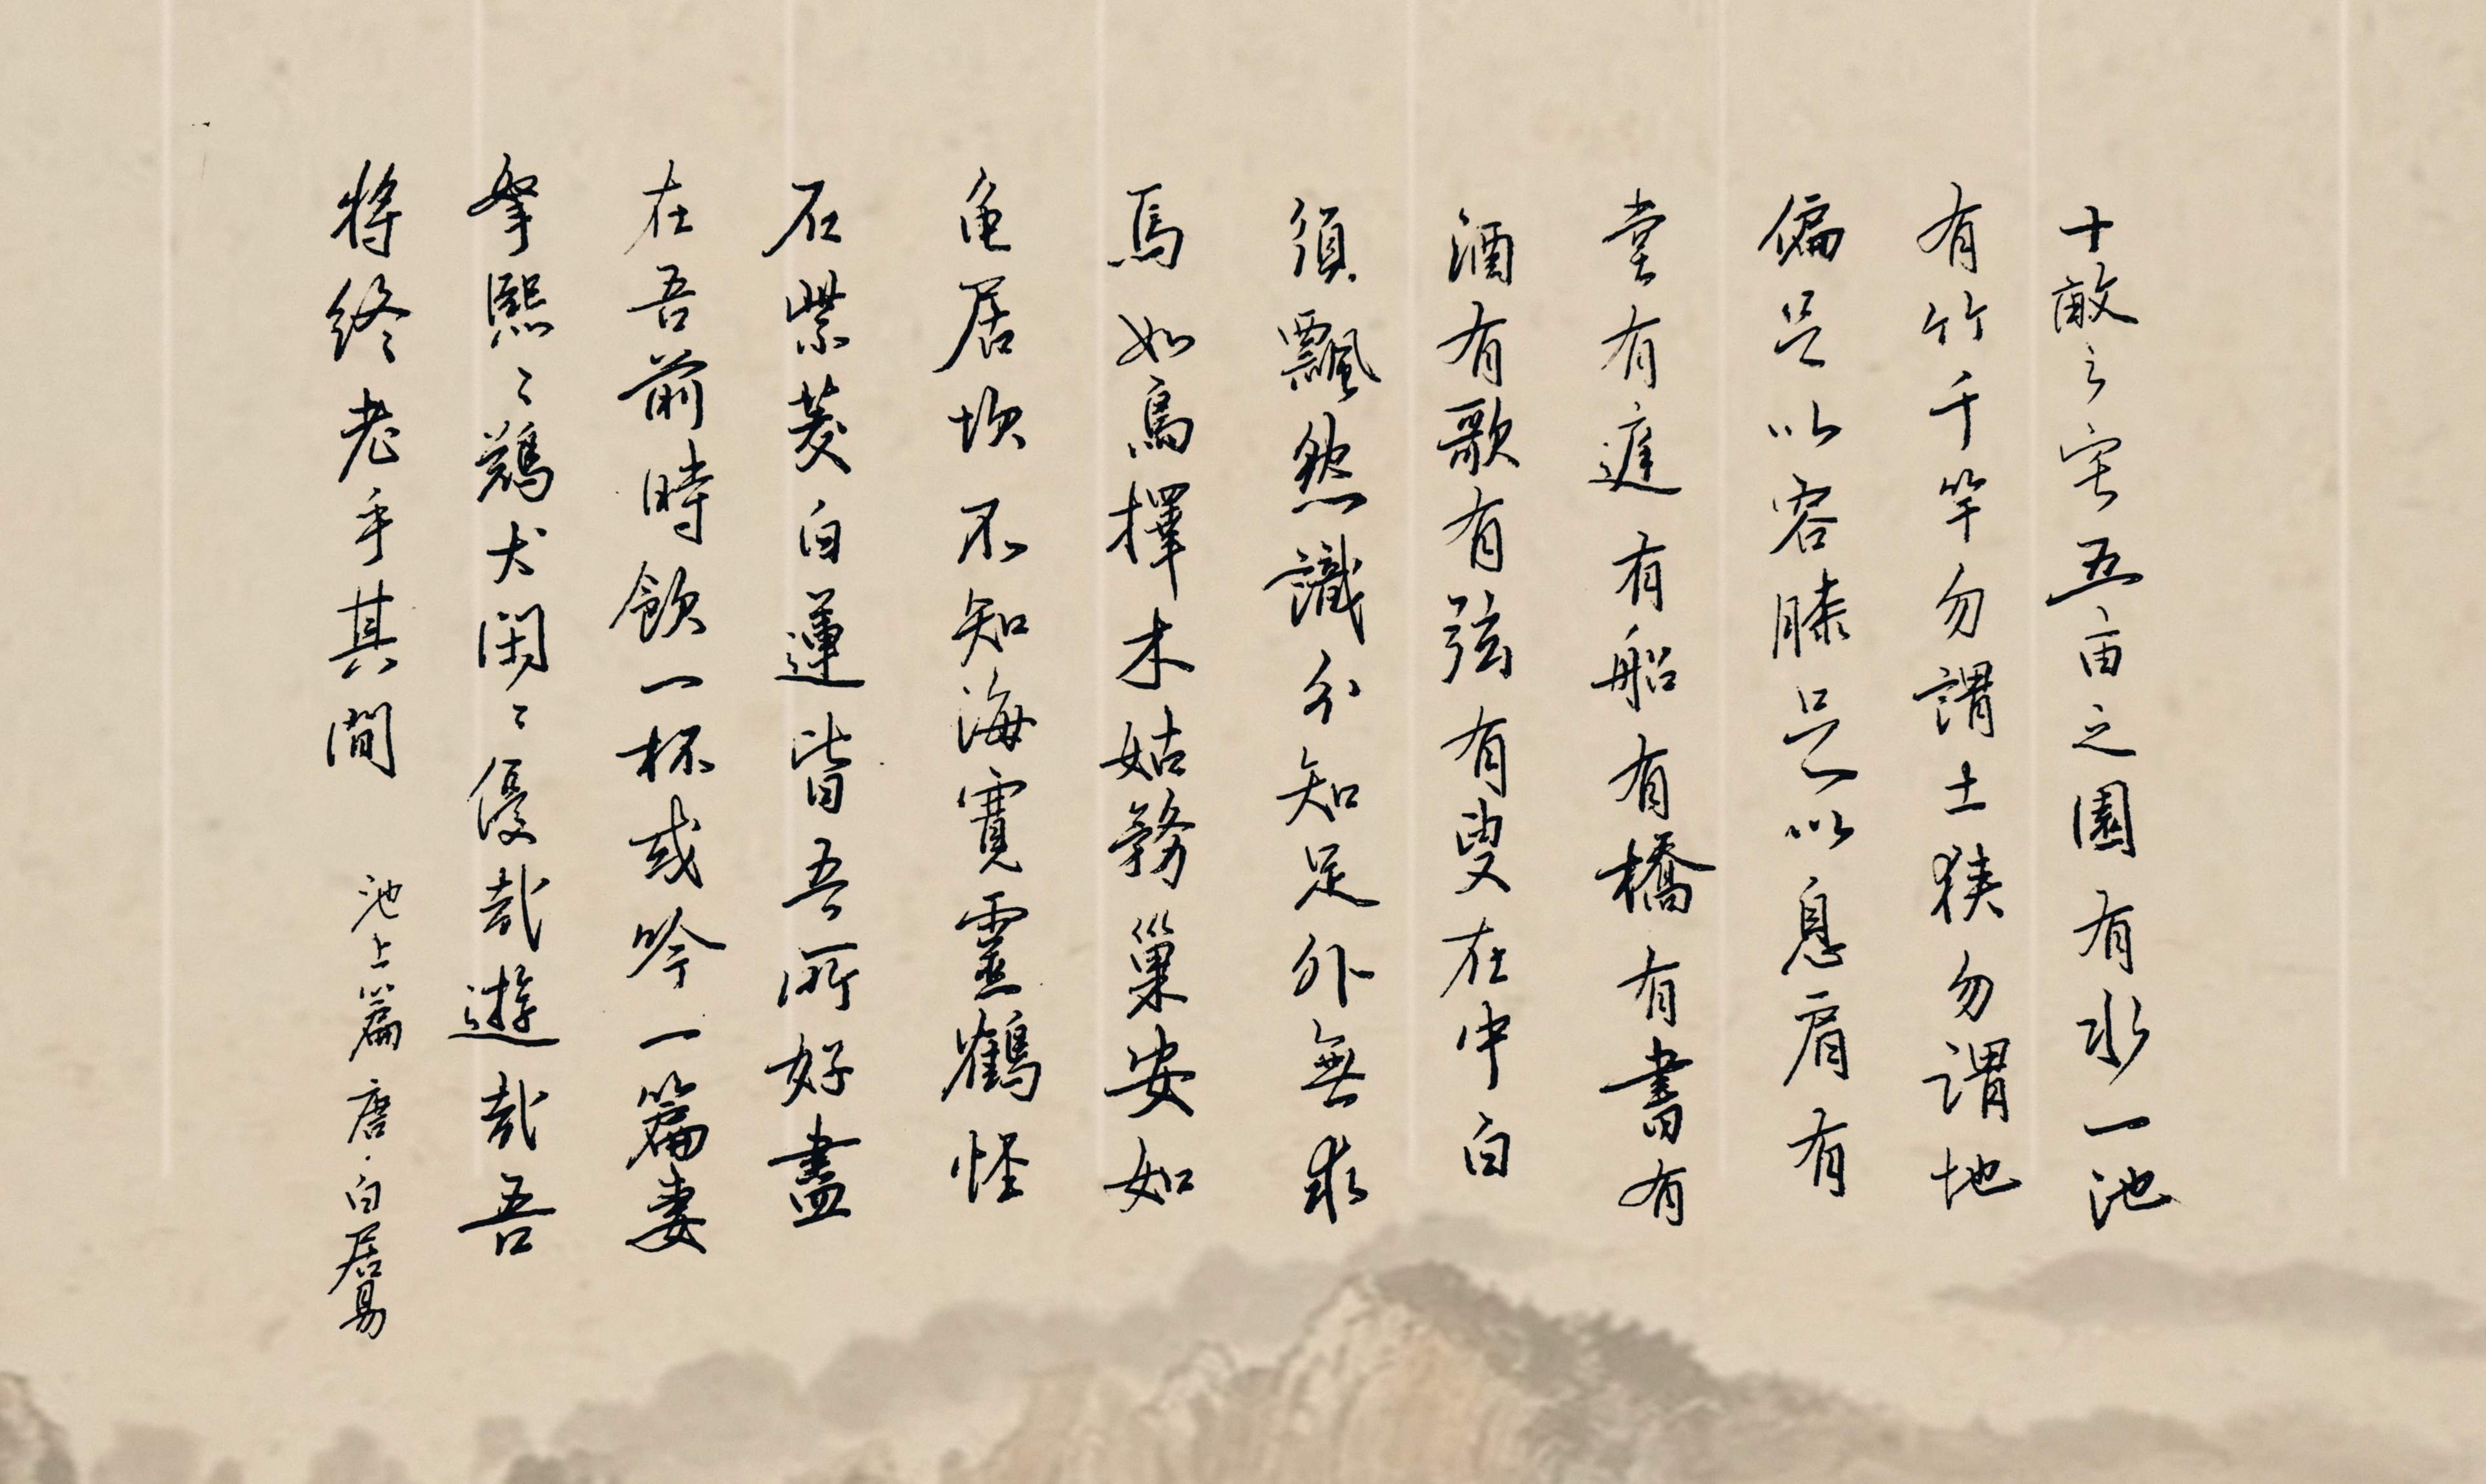 十畝之宅五亩之園有水一池
有竹千竿勿謂土狭勿謂地
偏足以容膝足以息肩有
堂有庭有船有橋有書有
酒有歌有弦有叟在中白
須飄然識分知足外無求
焉如鳥擇木姑務巢安如
龟居坎不知海寬靈鶴怪
石紫菱白蓮皆吾所好盡
在吾前時飲一杯或吟一篇妻
孥熙〻鷄犬閑〻優哉遊哉吾
將終老乎其間
池上篇 唐·白居易